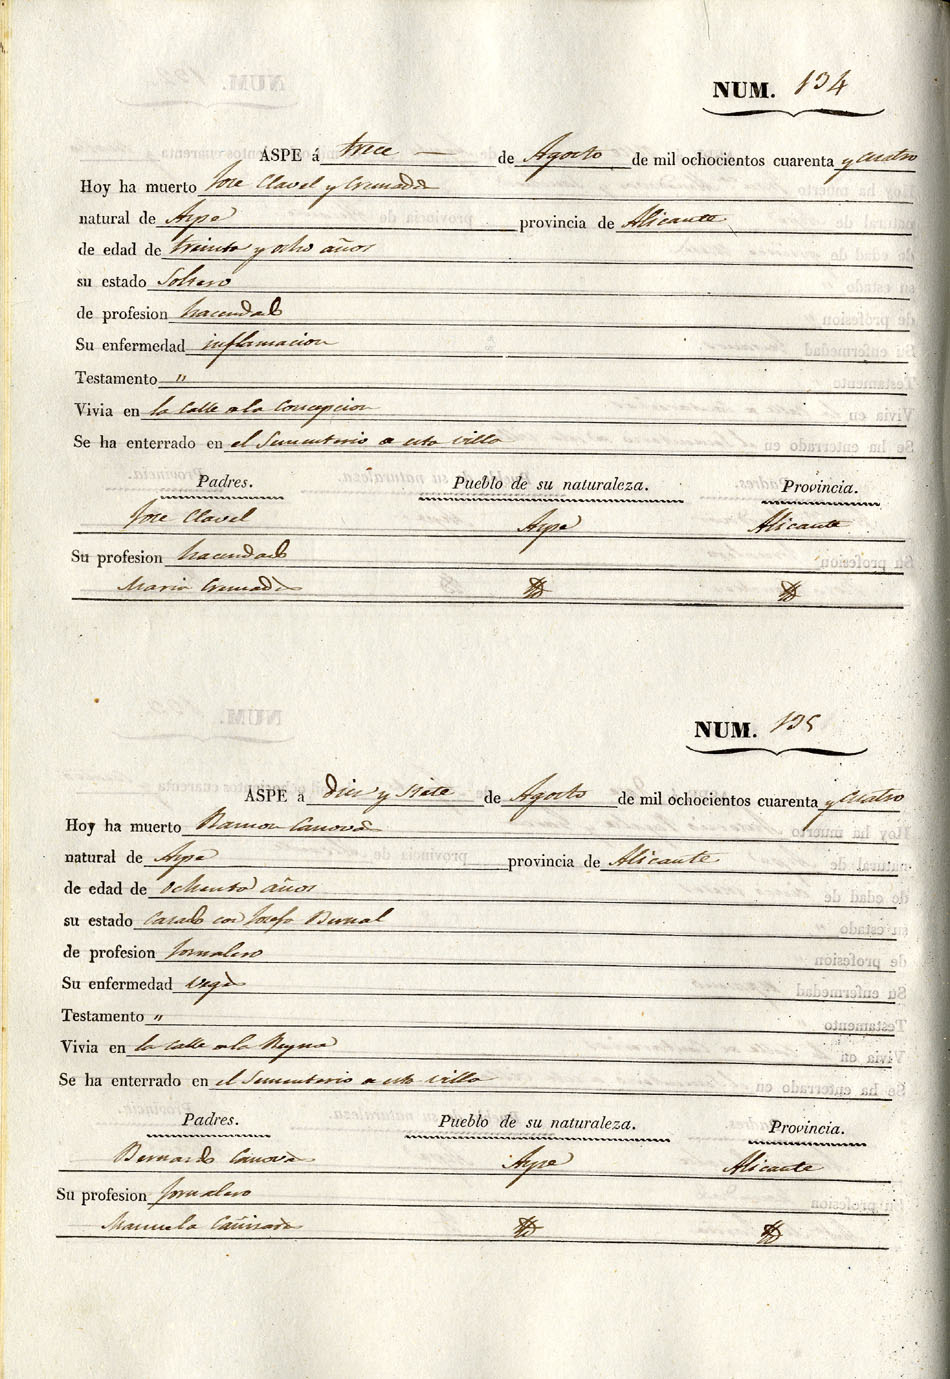 NUM. 134
ASPE á trece de Agosto de mil ochocientos cuarenta y cuatro
Hoy ha muerto Jose Clavel y Cremades
natural de Aspe provincia de Alicante
de edad de treinta y ocho años
su estado Soltero
de profesion hacendado
Su enfermedad inflamacion
Testamento "
Vivia en la Calle de la Concepcion
Se ha enterrado en el Sementerio de esta villa
Padres. Pueblo de su naturaleza. Provincia.
Jose Clavel Aspe Alicante
Su profesion hacendado
Maria Cremades
NUM. 135
ASPE a diez y siete de Agosto de mil ochocientos cuarenta y cuatro
Hoy ha muerto Ramon Canovas
natural de Aspe provincia de Alicante
de edad de ochenta años
su estado casado con Josefa Bernal
de profesion Jornalero
Su enfermedad vegez
Testamento "
Vivia en la calle de la Reyna
Se ha enterrado en el Sementerio de esta villa
Padres. Pueblo de su naturaleza. Provincia.
Bernardo Canovas Aspe Alicante
Su profesion Jornalero
Manuela